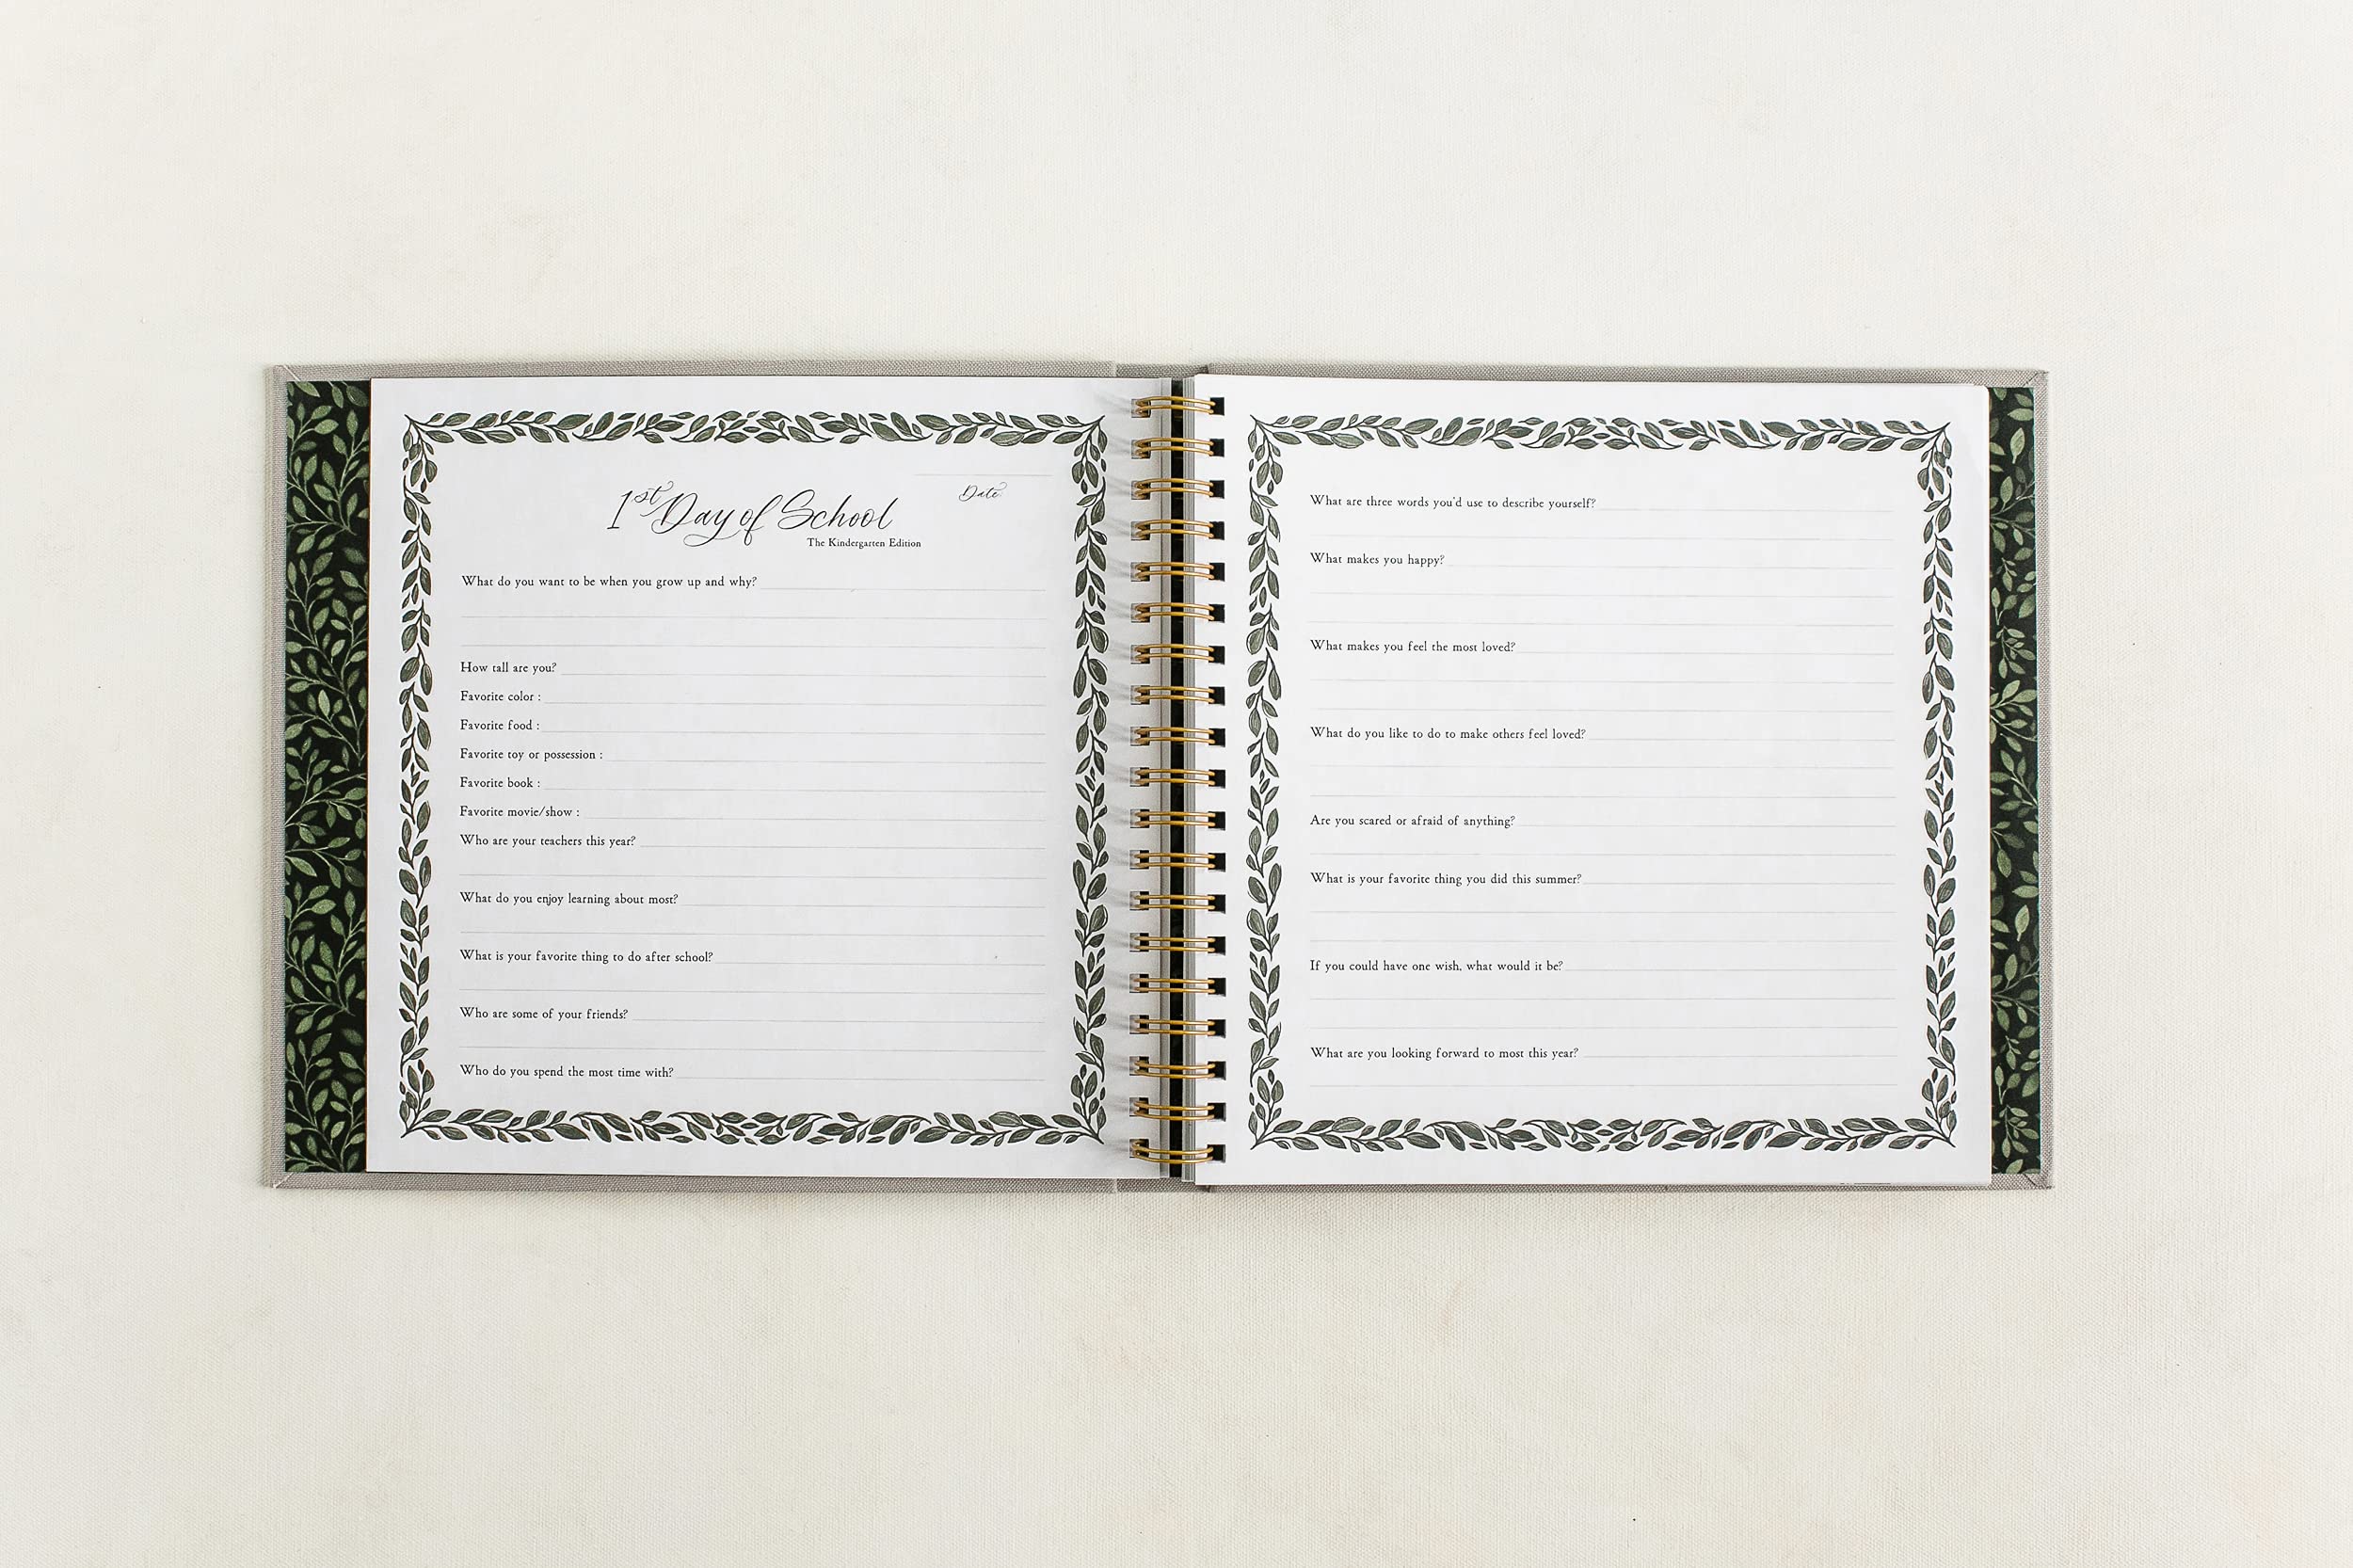 Date
1st Day of School
The Kindergarten Edition
What do you want to be when you grow up and why?
How tall are you?
Favorite color :
Favorite food :
Favorite toy or possession :
Favorite book :
Favorite movie/show :
Who are your teachers this year?
What do you enjoy learning about most?
What is your favorite thing to do after school?
Who are some of your friends?
Who do you spend the most time with?
What are three words you'd use to describe yourself?
What makes you happy?
What makes you feel the most loved?
What do you like to do to make others feel loved?
Are you scared or afraid of anything?
What is your favorite thing you did this summer?
If you could have one wish, what would it be?
What are you looking forward to most this year?